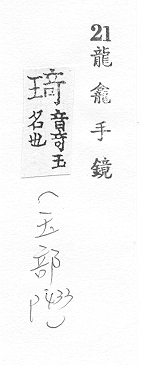 21 龍龕手鏡
琦音竒玉
名也
(玉部
p433)